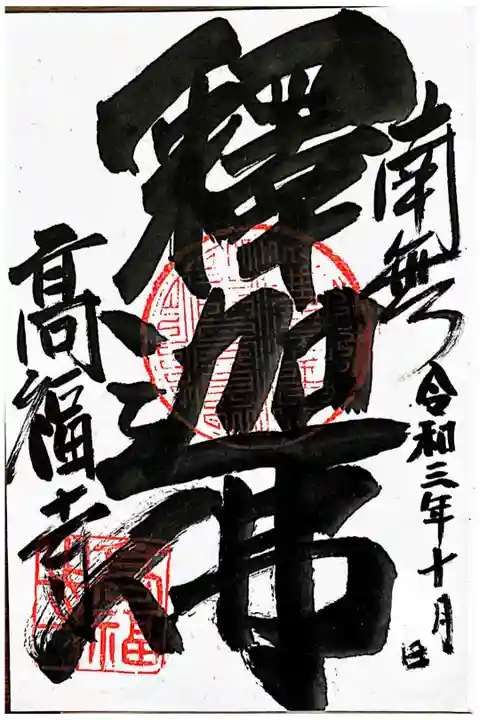 南無
令和三年十月 日
釋迦佛
高福寺
高福